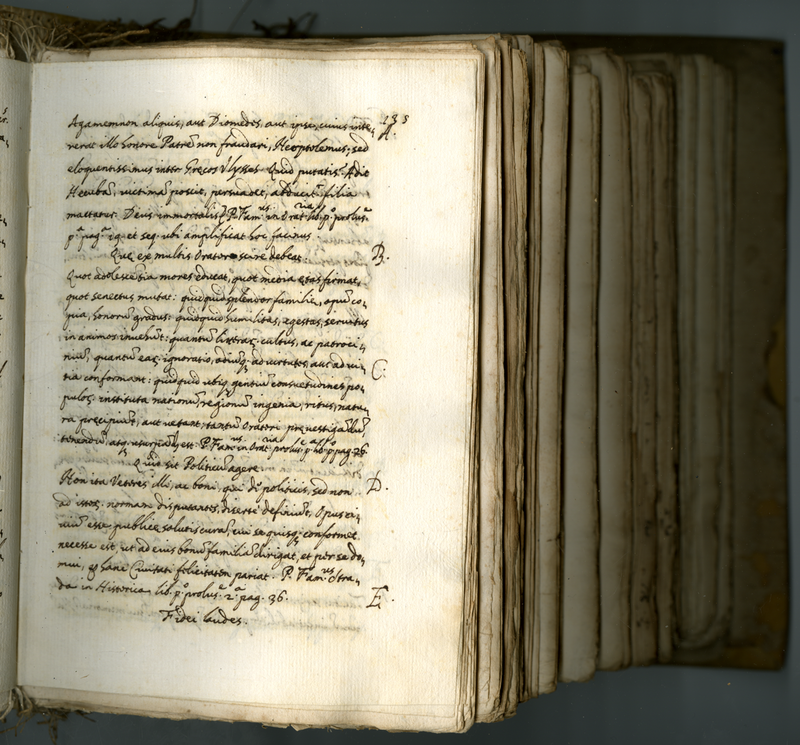 135
Agamemnon aliquis, aut Diomedes, aut ipse, cuius inte,
A.
rerat illo honore Patrē non fraudari, Neoptolemus, sed
eloquentissimus inter Grecos Vlysses. Quid putatis? Adit
Hecubā, victimā poscit, persuadet, abducitʳ filia
mactatur. Deus immortalis! P. Famᵘˢ. in Oratᵛⁱᵃ lib. pº. prolusᵉ
pᵃ. pagᵃ et seq. ubi amplificat hoc facinus.
Que ex multis Orator scire debeat.
B.
Quot adolescētia mores educat, quot media etas firmat,
quot senectus mutat: quidquid splendor familie, opū co,
pia, honorū gradus: quidquid humilitas, egestas, servitus
in animos invehūt: quantū litterarū cultus, ac patroci,
niū, quantū earū ignoratio, ad virtutes, aut ad vi,
C.
tia conformant: quidquid ubiq; gentiū consuetudines po,
pulorū instituta nationū, regionū ingenia, ritus, natu,
ra precipiūt, aut vetant, tantū Oratori pervestigādū,
tenendū, atq; usurpādū est. P. Famᵘˢ. in Oratᵛⁱᵃ prolusᵉ lib. pº pag. 26.
Quid sit Politicū agere.
D.
Non ita Veteres illi, ac boni, qui de politicis, sed non
ad istorū normam disputantes, diserte definiūt, Opus ci,
viū esse publice salutis curā, cui se quisq; conformet
necesse est, ut ad eius bonū familiā dirigat, et per se do,
mui, Civitati felicitatem pariat. P. Famᵘˢ. Stra,
da in Historica lib. pº. prolusᵉ 2ᵃ pag. 36.
E.
Fidei laudes.